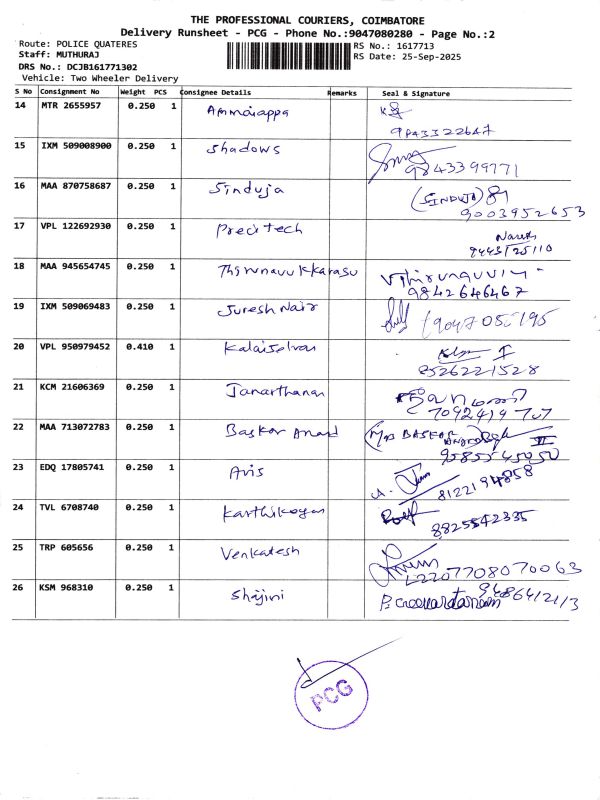 THE PROFESSIONAL COURIERS, COIMBATORE
Delivery Runsheet - PCG - Phone No.:9047080280 - Page No.:2
Route: POLICE QUATERES RS No.: 1617713
Staff: MUTHURAJ RS Date: 25-Sep-2025
DRS No.: DCJB161771302
Vehicle: Two Wheeler Delivery
S No Consignment No Weight PCS Consignee Details Remarks Seal & Signature
14 MTR 2655957 0.250 1 Ammaiappa
9843322647
15 IXM 509008900 0.250 1 Shadows
9843399771
16 MAA 870758687 0.250 1 Sinduja (SINDUJA)
9003952653
17 VPL 122692930 0.250 1 Precitech Naresh
9443725110
18 MAA 945654745 0.250 1 Thirunavukkarasu
9842646467
19 IXM 509069483 0.250 1 Suresh Nair
9047055195
20 VPL 950979452 0.410 1 Kalaiselvan
8526221528
21 KCM 21606369 0.250 1 Janarthanan
22 MAA 713072783 0.250 1 Baskar Anand (Mrs BASKAR
9585545050
23 EDQ 17805741 0.250 1 Avis
8122194858
24 TVL 6708740 0.250 1 Karthikeyan
8825542335
25 TRP 605656 0.250 1 Venkatesh
7708070063
26 KSM 968310 0.250 1 Shajini
9486412113
PCG